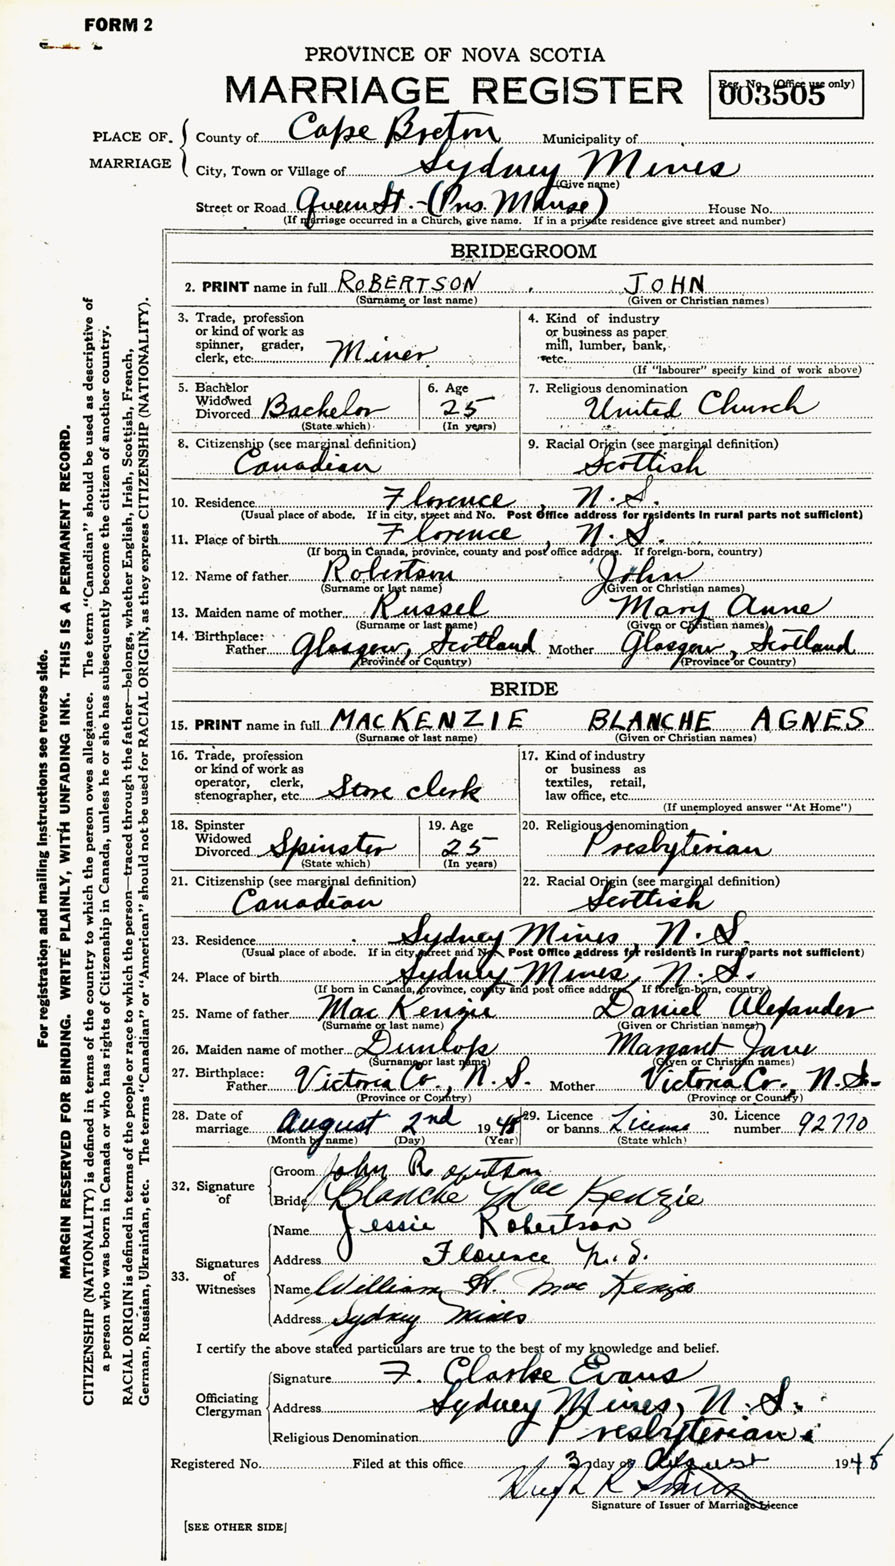 FORM 2
PROVINCE OF NOVA SCOTIA
MARRIAGE REGISTER
Reg. No. (Office use only)
003505
PLACE OF MARRIAGE
County of Cape Breton Municipality of
City, Town or Village of Sydney Mines
(Give name)
Street or Road Queen St. - (Pres. Manse) House No.
(If marriage occurred in a Church, give name. If in a private residence give street and number)
BRIDEGROOM
2. PRINT name in full ROBERTSON, JOHN
(Surname or last name) (Given or Christian names)
3. Trade, profession or kind of work as spinner, grader, clerk, etc. Miner
4. Kind of industry or business as paper mill, lumber, bank, etc.
(If "labourer" specify kind of work above)
5. Bachelor Widowed Divorced Bachelor
(State which)
6. Age 25
(In years)
7. Religious denomination United Church
8. Citizenship (see marginal definition) Canadian
9. Racial Origin (see marginal definition) Scottish
10. Residence Florence, N.S.
(Usual place of abode. If in city, street and No. Post Office address for residents in rural parts not sufficient)
11. Place of birth Florence, N.S.
(If born in Canada, province, county and post office address. If foreign-born, country)
12. Name of father Robertson John
(Surname or last name) (Given or Christian names)
13. Maiden name of mother Russel Mary Anne
(Surname or last name) (Given or Christian names)
14. Birthplace: Father Glasgow, Scotland Mother Glasgow, Scotland
(Province or Country) (Province or Country)
BRIDE
15. PRINT name in full MACKENZIE BLANCHE AGNES
(Surname or last name) (Given or Christian names)
16. Trade, profession or kind of work as operator, clerk, stenographer, etc. Store clerk
17. Kind of industry or business as textiles, retail, law office, etc.
(If unemployed answer "At Home")
18. Spinster Widowed Divorced Spinster
(State which)
19. Age 25
(In years)
20. Religious denomination Presbyterian
21. Citizenship (see marginal definition) Canadian
22. Racial Origin (see marginal definition) Scottish
23. Residence Sydney Mines, N.S.
(Usual place of abode. If in city, street and No. Post Office address for residents in rural parts not sufficient)
24. Place of birth Sydney Mines, N.S.
(If born in Canada, province, county and post office address. If foreign-born, country)
25. Name of father MacKenzie Daniel Alexander
(Surname or last name) (Given or Christian names)
26. Maiden name of mother Dunlop Margaret Jane
(Surname or last name) (Given or Christian names)
27. Birthplace: Father Victoria Co., N.S. Mother Victoria Co., N.S.
(Province or Country) (Province or Country)
28. Date of marriage August 2nd 1948
(Month by name) (Day) (Year)
29. Licence or banns License
(State which)
30. Licence number 92770
32. Signature of
Groom John Robertson
Bride Blanche MacKenzie
33. Signatures of Witnesses
Name Jessie Robertson
Address Florence N.S.
Name William H. MacKenzie
Address Sydney Mines
I certify the above stated particulars are true to the best of my knowledge and belief.
Officiating Clergyman
Signature F. Clarke Evans
Address Sydney Mines, N.S.
Religious Denomination Presbyterian
Registered No. Filed at this office 3 day of August 1948
Hugh R
Signature of Issuer of Marriage Licence
[SEE OTHER SIDE]
For registration and mailing instructions see reverse side.
MARGIN RESERVED FOR BINDING. WRITE PLAINLY, WITH UNFADING INK. THIS IS A PERMANENT RECORD.
CITIZENSHIP (NATIONALITY) is defined in terms of the country to which the person owes allegiance. The term "Canadian" should be used as descriptive of
a person who was born in Canada or who has rights of Citizenship in Canada, unless he or she has subsequently become the citizen of another country.
RACIAL ORIGIN is defined in terms of the people or race to which the person—traced through the father—belongs, whether English, Irish, Scottish, French,
German, Russian, Ukrainian, etc. The terms "Canadian" or "American" should not be used for RACIAL ORIGIN, as they express CITIZENSHIP (NATIONALITY).